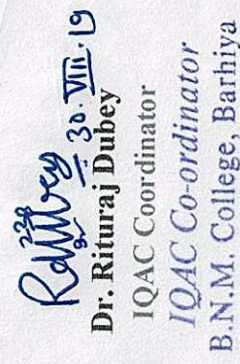 RDubey
30.VIII.19
Dr. Rituraj Dubey
IQAC Coordinator
IQAC Co-ordinator
B.N.M. College, Barhiya